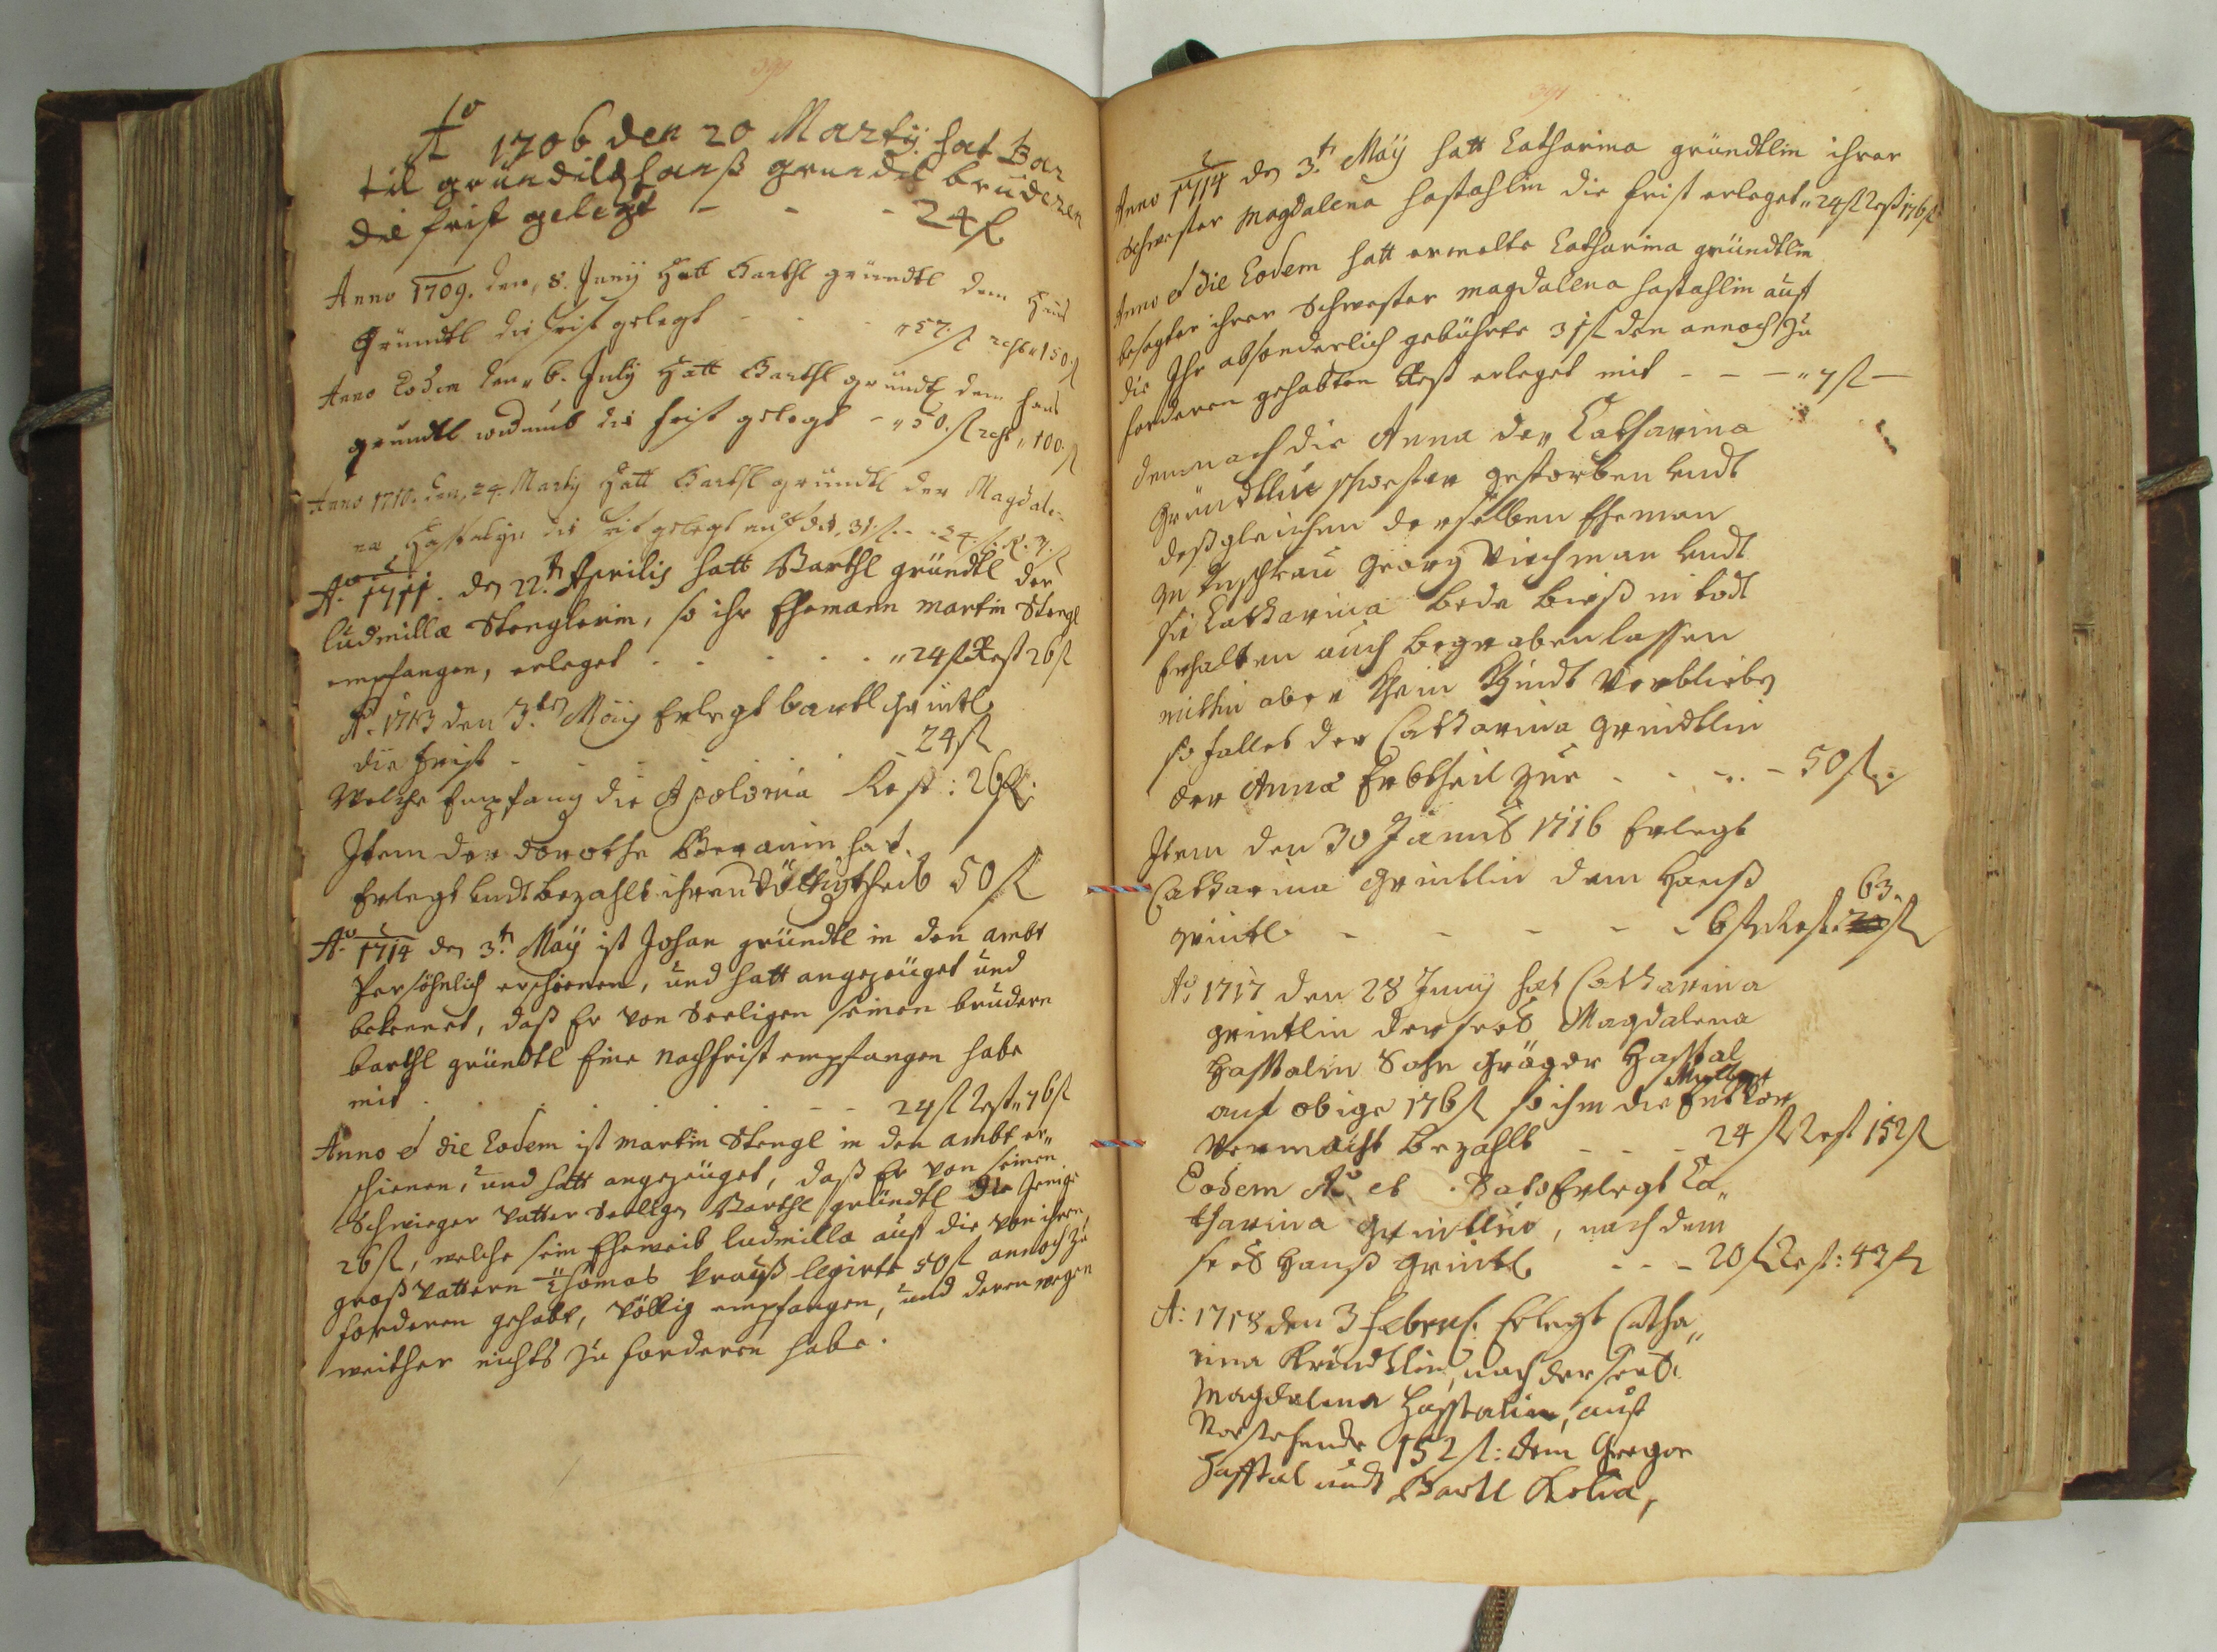 390
Ao 1706 den 20 Martÿ hat Bar
til gründil hanß gründl brüderen
die frist gelegt - - - 24 fl
Anno 1709. den, 8. Junÿ Hatt Barthl gründtl dem Hans
Gründtl die frist gelegt - - - " 57. fl rest " 150 fl
Anno Eodem den " 6. July Hatt Barthl gründtl dem Hans
gründtl widumb die frist gelegt - " 50. fl rest " 100. fl
Anno 1710. den, 24. Martÿ Hatt Barthl gründtl der Magdale-
na die frist gelegt auf die, 31 fl - - 24. fl. R. 7. fl
Ao. 1711. den 22.t Aprilis hatt Barthl gründtl der
Ludmilla Stenglerin, so ihr Ehemann Martin Stengl
empfangen, erleget . . . . . . " 24 fl Rest 26 fl
Ao. 1713 den 3.ten Maÿ Erlegt bartl grüntl
die frist - . . . . 24 fl
Welche Empfang die Apolonia Rest: 26 fl.
Item der dorothe hat
Erlegt undt bezahlt ihren theil 50 fl
Ao. 1714 den 3.t Maÿ ist Johan gründtl in den ambt
Persöhnlich erschienen, und hatt angezeüget und
bekennet, daß Er von Seeligen seinen brudern
barthl gründtl Eine nachfrist empfangen habe
mit . . . . . . - - 24 fl Rest " 76 fl
Anno et die Eodem ist Martin Stengl in den ambt er"
schienen, und hatt angezeüget, daß Er von seinen
Schwieger Vatter Seeligen Barthl gründtl die Jenige
26 fl, welche sein Eheweib Ludmilla auf die von ihren
groß Vattern Thomas Krauß legirte 50 fl annoch zu
forderen gehabt, völlig empfangen, und deren wegen
weither nichts zu forderen habe.
391
Anno 1714 den 3.t Maÿ hatt Catharina gründtlin ihrer
Schwester Magdalena hastahlin die frist erleget " 24 fl Rest 176 fl
Anno et die Eodem hatt ermelte Catharina gründtlin
besagter ihrer Schwester Magdalena hastahlin auf
die Ihr absonderlich gebührte 31 fl den annoch zu
forderen gehabten Rest erleget mit - - - " 7 fl -
demnach die Anna der Catharina
Gründtlin schwester gestorben undt
deßgleichen derselben Eheman
zu Georg undt
sie Catharina bede biß in todt
Erhalten auch begraben lassen
mithin aber Khein Khindt Verblieben
so fallet der Catharina gründtlin
der Anna Erbtheil zue - - - - 50 fl.
Item den 30 1716 Erlegt
Catharina grüntlin dem Hanß
grüntl - - - - - 6 fl Rest: 63. fl
Ao. 1717 den 28 Junÿ hat Catharina
grüntlin der Magdalena
Hasstalin Sohn Hasstal
auf obige 176 fl so ihm die Mutter
Vermacht bezahlt - - - 24 fl Rest 152 fl
Eodem Ao. et Dato Erlegt Ca"
tharina grüntlin, nach dem
Hanß grüntl - - - 20 fl Rest: 43 fl
A: 1718 den 3 Erlegt Catha"
rina Kründtlin, nach der
Magdalena Hasstalin, auf
Vorstehende 152 fl: dem Gregor
Hasstal undt Bartl